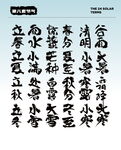 THE 24 SOLAR
TERMS
立春立夏立秋立冬
雨水小满处暑小雪
惊蛰芒种白露大雪
春分夏至秋分冬至
清明小暑寒露小寒
谷雨大暑霜降大寒